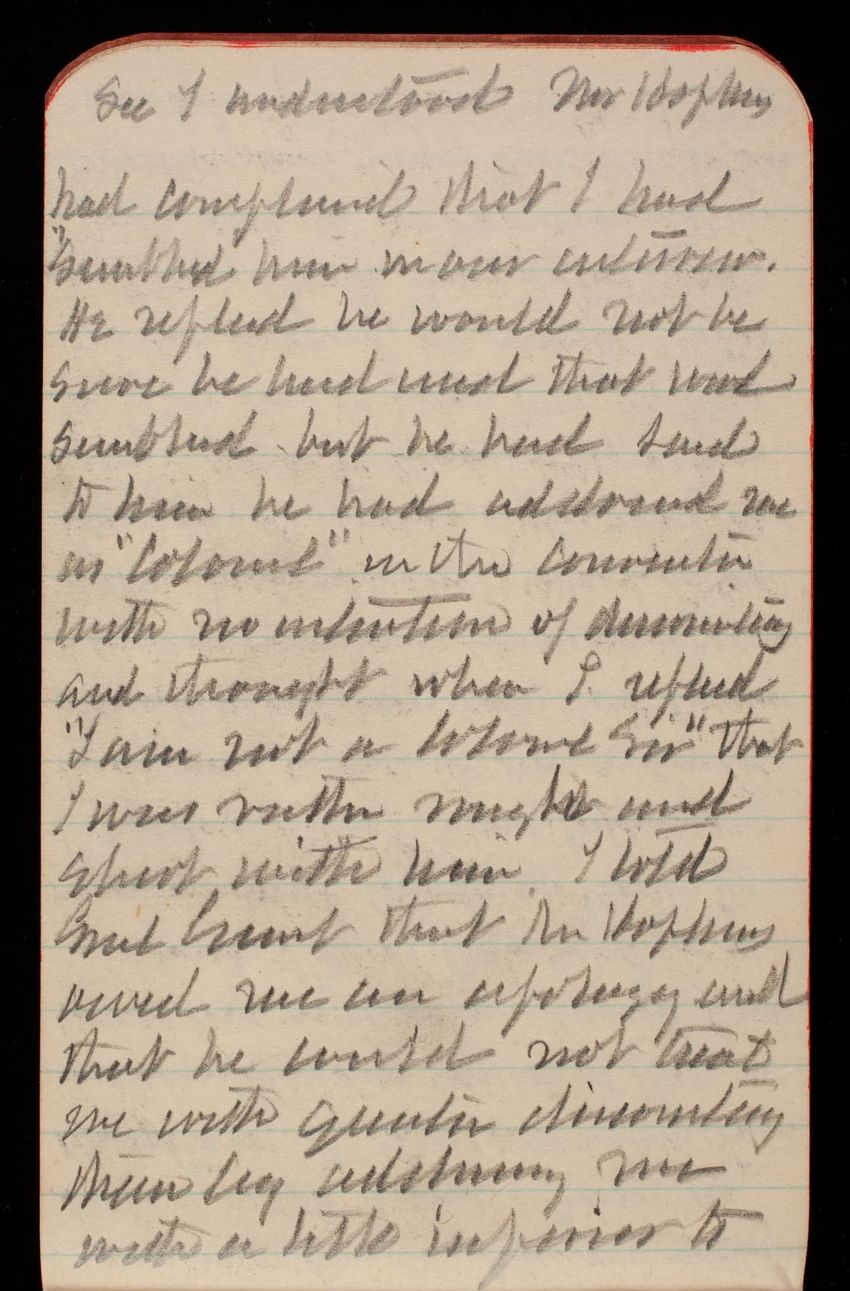 See I understood Mr Hopkins
had complained that I had
"snubbed him in our interview.
He replied he would not be
sure he had used that word
snubbed but he had said
to him he had addressed me
as "Colonel" in the
with no intention of discourtesy
and thought when I replied
"I am not a Colonel Sir" that
I was rather and
short with him. I told
Genl Grant that Mr Hopkins
owed me an apology and
that he could not treat
me with greater discourtesy
than by addressing me
with a title inferior to